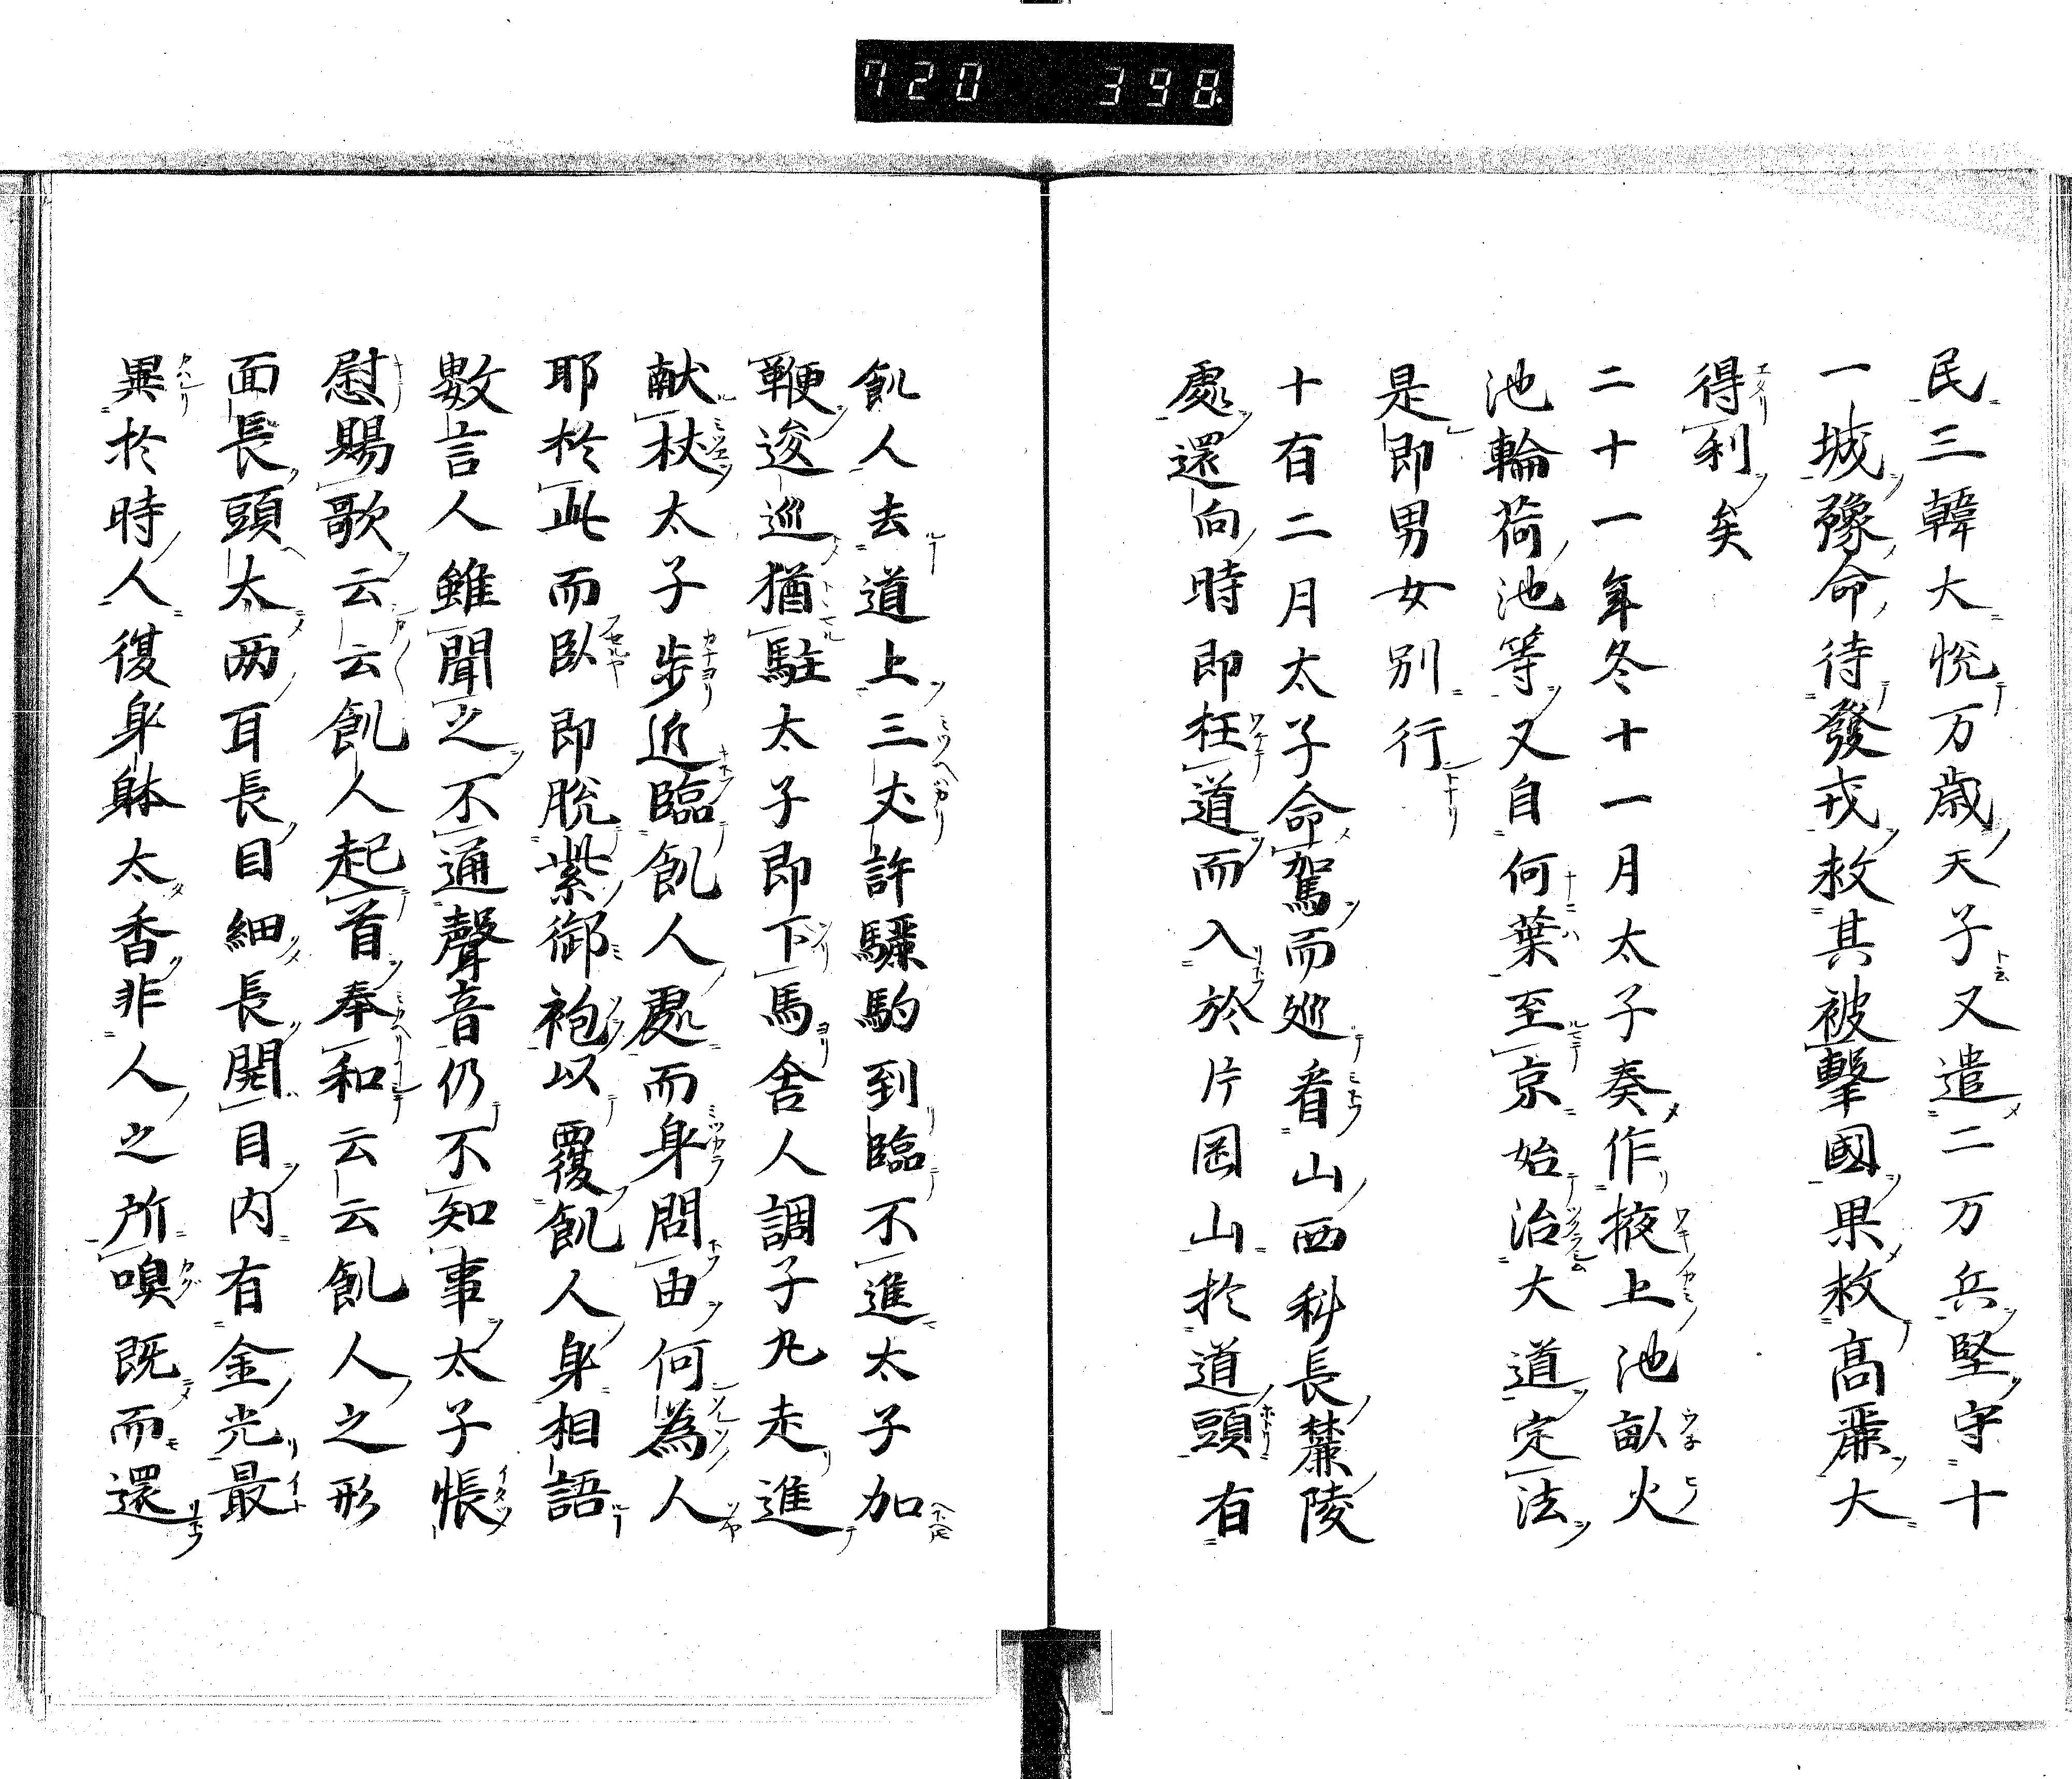 720 398
民三韓大悦万歳天子又遣二万兵堅守十
一城豫命待發戎救其被撃國果救髙麗大
得利矣
二十一年冬十一月太子奏作掖上池畝火
池輪荷池等又自何葉至京始治大道定法
是即男女別行
十有二月太子命駕而巡看山西科長麓陵
處還向時即枉道而入於片岡山於道頭有
飢人去道上三丈許驪駒到臨不進太子加
鞭逡巡猶駐太子即下馬舎人調子丸走進
献杖太子歩近臨飢人處而身問由何為人
耶於此而臥即脱紫御袍以覆飢人身相語
數言人雖聞之不通聲音仍不知事太子悵
慰賜歌云云飢人起首奉和云云飢人之形
面長頭太两耳長目細長開目内有金光最
異於時人復身躰太香非人之所嗅既而還